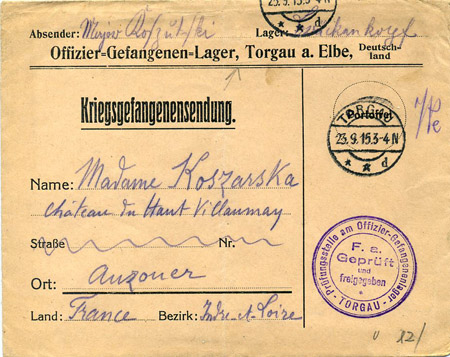 23.9.15.3-4N
* * d
Absender: Lager:
Offizier-Gefangenen-Lager, Torgau a. Elbe, Deutschland
Kriegsgefangenensendung.
Portofrei
TORGAU
23.9.15.3-4N
* * d
Name: Madame Koszarska
Château du Haut Villaumay
Straße Nr.
Ort: Auzouer
Land: France Bezirk: Indre-et-Loire
Prüfungsstelle am Offizier-Gefangenenlager
F. a.
Geprüft
und
freigegeben
TORGAU